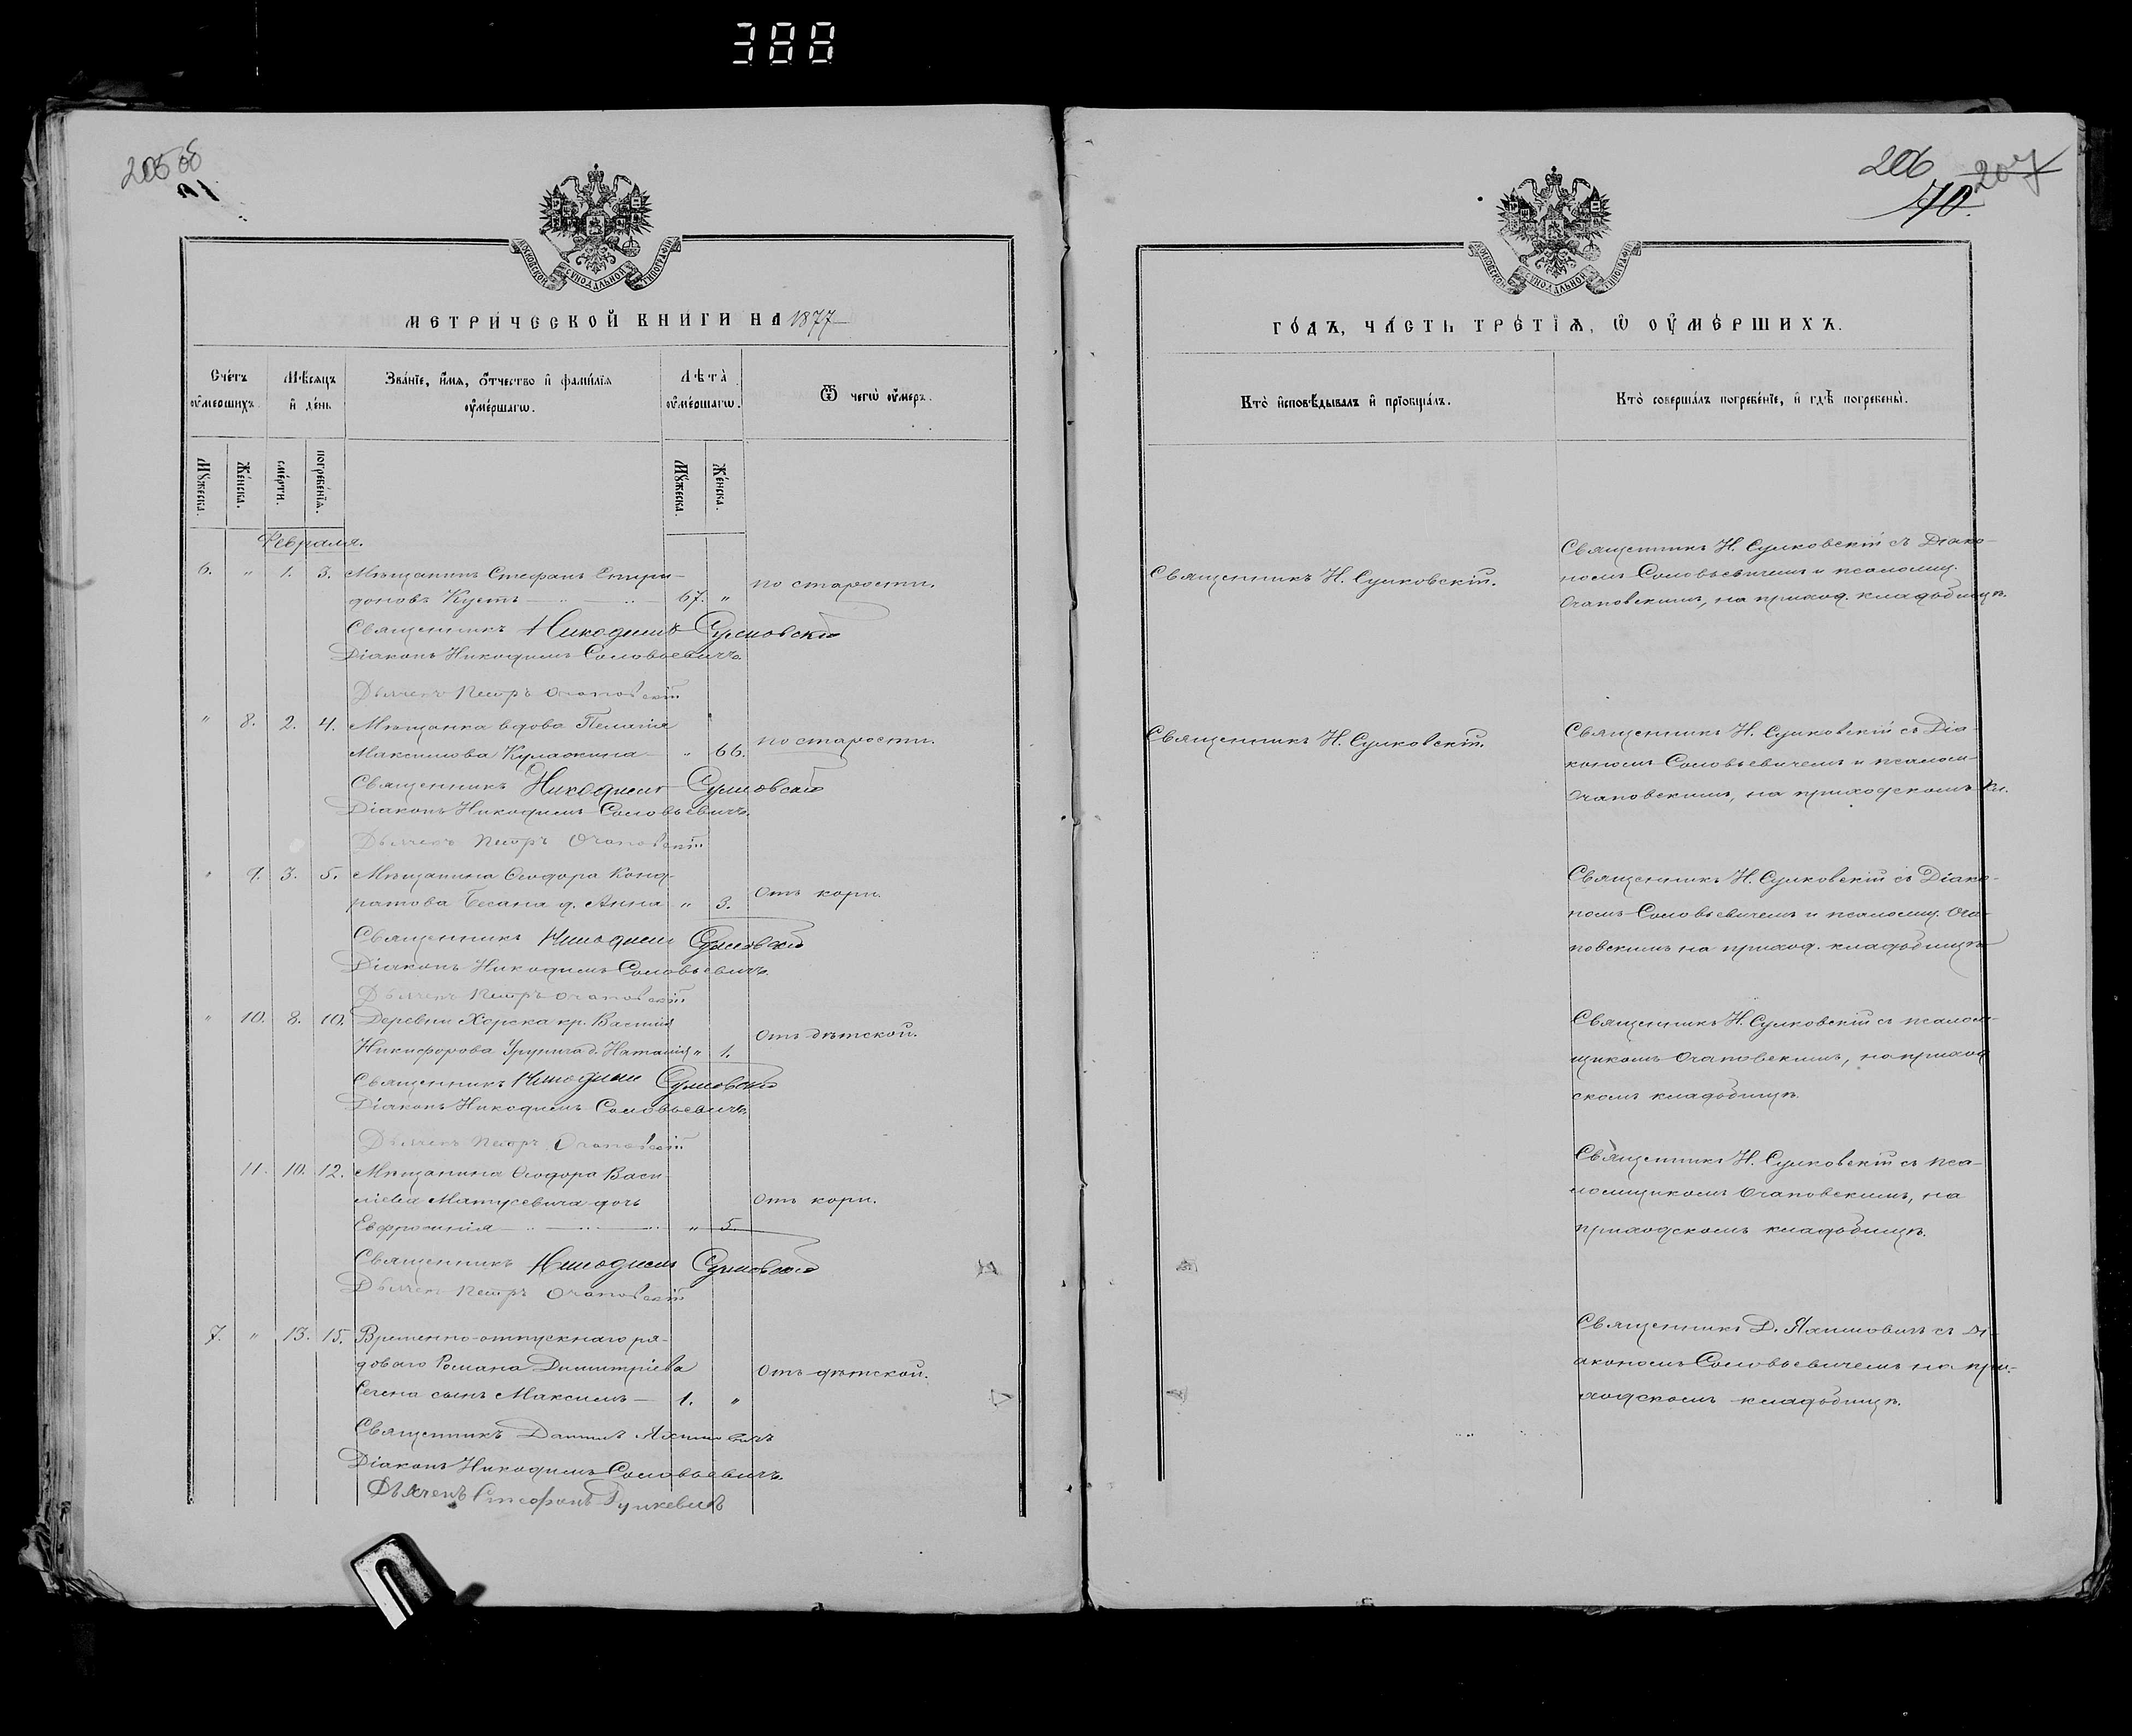 388
205 об
МОСКОВСКОЙ СѴНОДАЛЬНОЙ ТИПОГРАФІИ
МЕТРИ́ЧЕСКОЙ КНИГИ НА 1877
Сче́тъ ᲂу҆ме́ршихъ.
Мѣ́сяцъ и҆ де́нь.
Зва́нїе, и҆́мя, ѻ҆́тчество и҆ фамі́лїя ᲂу҆ме́ршагѡ.
Лѣ́та̀ ᲂу҆ме́ршагѡ.
Ѿ чегѡ̀ ᲂу҆́меръ.
Мꙋ́жеска.
Же́нска.
сме́рти.
погребе́нїя.
Мꙋ́жеска.
Же́нска.
Февраля.
6. " 1. 3. Мѣщанинъ Стефанъ Спири-
доновъ Кустъ 67. " по старости.
Священникъ Никодимъ Сулковскій
Діаконъ Никодимъ Соловьевичъ.
Дьячекъ Петръ Очаповскій
" 8. 2. 4. Мѣщанка вдова Пелагія
Максимова Кулажина " 66. по старости.
Священникъ Никодимъ Сулковскій
Діаконъ Никодимъ Соловьевичъ.
Дьячекъ Петръ Очаповскій
" 9. 3. 5. Мѣщанина Ѳеодора Конд-
ратова д. Анна " 3. отъ кори.
Священникъ Никодимъ Сулковскій
Діаконъ Никодимъ Соловьевичъ.
Дьячекъ Петръ Очаповскій
" 10. 8. 10. Деревни Хорска кр. Василія
Никифорова д. Наталія " 1. отъ дѣтской.
Священникъ Никодимъ Сулковскій
Діаконъ Никодимъ Соловьевичъ.
Дьячекъ Петръ Очаповскій
11. 10. 12. Мѣщанина Ѳеодора Васи-
ліева Матусевича дочь
Евфросинія " 5. отъ кори.
Священникъ Никодимъ Сулковскій
Дьячекъ Петръ Очаповскій
7. " 13. 15. Временно-отпускнаго ря-
доваго Романа Димитріева
сынъ Максимъ 1. " отъ дѣтской.
Священникъ Даніилъ Яхимовичъ
Діаконъ Никодимъ Соловьевичъ.
Дьячекъ Стефанъ
206
207
70.
МОСКОВСКОЙ СѴНОДАЛЬНОЙ ТИПОГРАФІИ
ГО́ДЪ, ЧА́СТЬ ТРЕ́ТЇѦ, Ѡ҆ ОУ҆МЕ́РШИХЪ.
Кто̀ и҆сповѣ́дывалъ и҆ прїобща́лъ.
Кто̀ соверша́лъ погребе́нїе, и҆ гдѣ̀ погребены̀.
Священникъ Н. Сулковскій.
Священникъ Н. Сулковскій съ Діако-
номъ Соловьевичемъ и псаломщ.
Очаповскимъ, на приход. кладбищѣ.
Священникъ Н. Сулковскій.
Священникъ Н. Сулковскій съ Діа-
кономъ Соловьевичемъ и псалом-
Очаповскимъ, на приходскомъ кл.
Священникъ Н. Сулковскій съ Діако-
номъ Соловьевичемъ и псаломщ. Оча-
повскимъ на приход. кладбищѣ
Священникъ Н. Сулковскій съ псалом-
щикомъ Очаповскимъ, на приход
скомъ кладбищѣ.
Священникъ Н. Сулковскій съ пса-
ломщикомъ Очаповскимъ, на
приходскомъ кладбищѣ.
Священникъ Д. Яхимовичъ съ Ді-
акономъ Соловьевичемъ на при-
ходскомъ кладбищѣ.